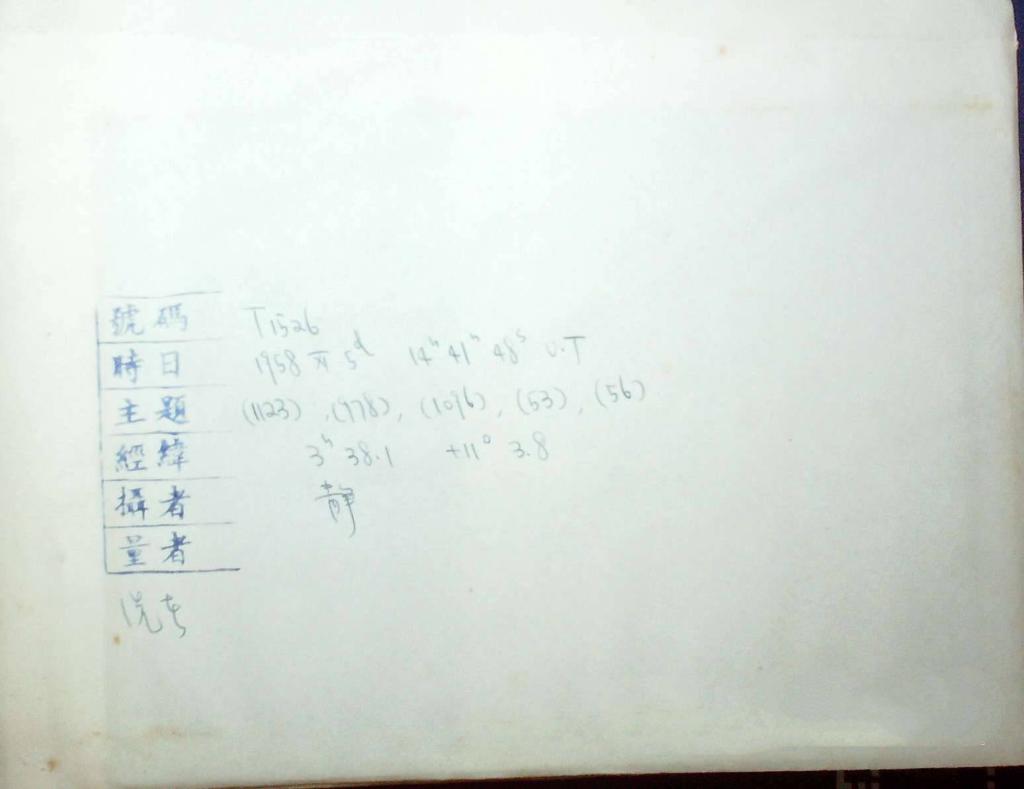 號碼 T1526
時日 1958 XI 5d 14h 41m 48s U.T
主題 (1123), (978), (1096), (53), (56)
經緯 3h 38.1 +11° 3.8
攝者 靜
量者